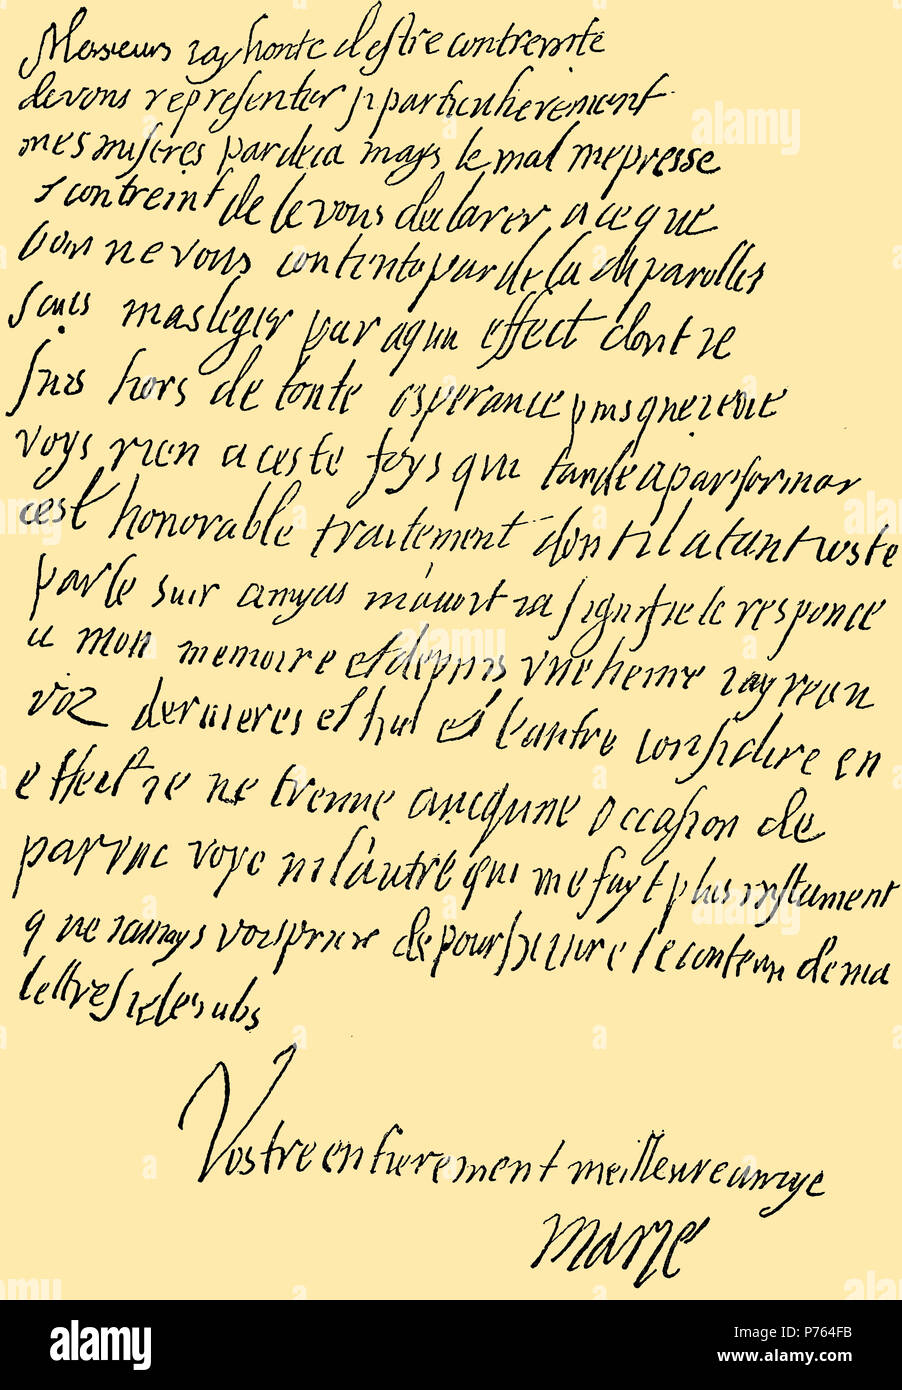 Messieurs iay honte destre contreinte
de vous representer si particulierement
mes miseres par deca mays le mal me presse
contreint de le vous declarer a ce que
lon ne vous contente par de la de parolles
sans masleger par aqun effect dont ie
suis hors de toute esperance puis que ie ne
voys rien a ceste foys qui tande a parformer
cest honorable traitement dont il a tant
par le sieur amyas m'auoit ia signifie le responce
a mon memoire et depuis vne heure iay receu
voz dernieres et lautre considere en
effect ie ne treuue aucqune occasion de
voye ni l'autre qui me fayt plus instament
que iamays vous prier de poursuiure le contenu de ma
lettre
Vostre entierement meilleure amye
Marie
alamy
P764FB
www.alamy.com